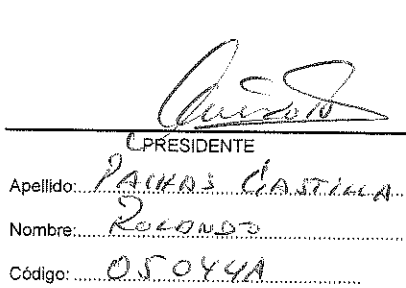 PRESIDENTE
Apellido: PACHAS CASTILLA
Nombre: ROLANDO
Código: 05044A